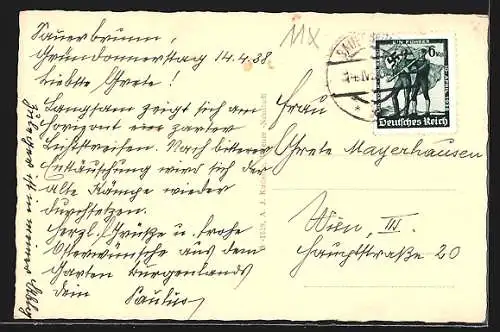 Sauerbrunn,
Gründonnerstag 14.4.38
Liebste Grete!
Langsam zeigt sich am
Horizont ein zarter
Lichtstreifen. Nach bitterer
Enttäuschung wird sich der
alte Kämpe wieder
durchsetzen.
Herzl. Grüße u. frohe
Osterwünsche aus dem
Garten Burgenlands
Dein
111X
6
Deutsches Reich
Frau
Grete Mayerhausen
Wien, III.
Hauptstraße 20